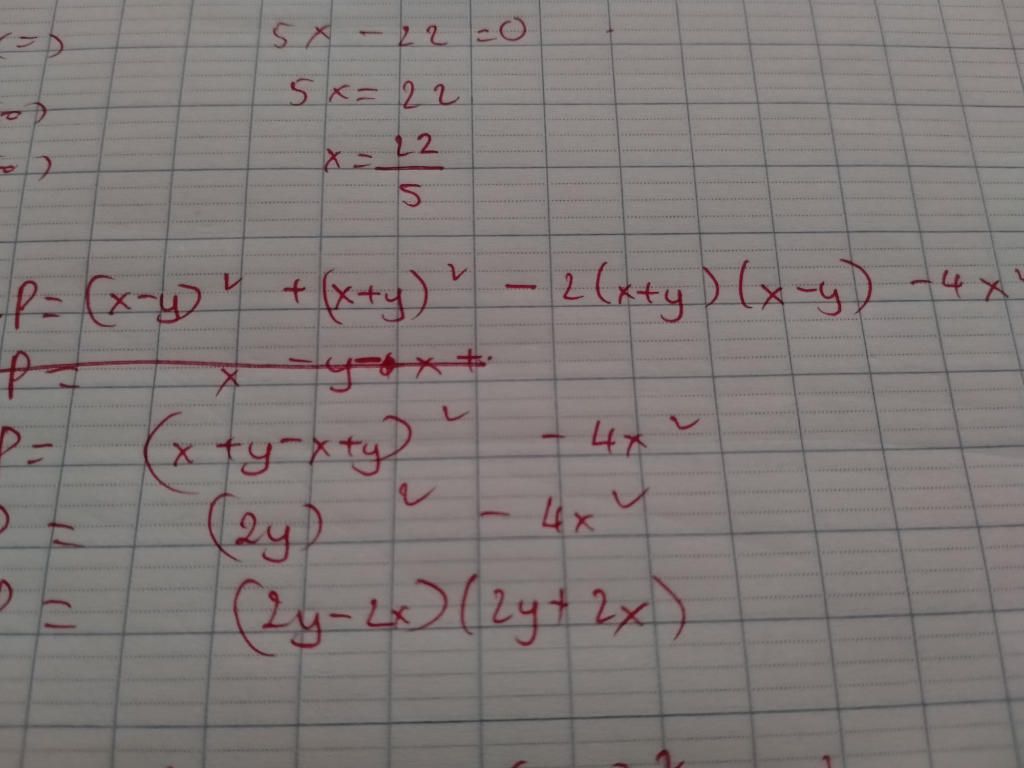 (=) 5x - 22 = 0
=) 5x = 22
=) x = 22/5
P = (x-y)² + (x+y)² - 2(x+y)(x-y) - 4x²
P = x - y - x +
P = (x+y-x+y)² - 4x²
P = (2y)² - 4x²
P = (2y-2x)(2y+2x)